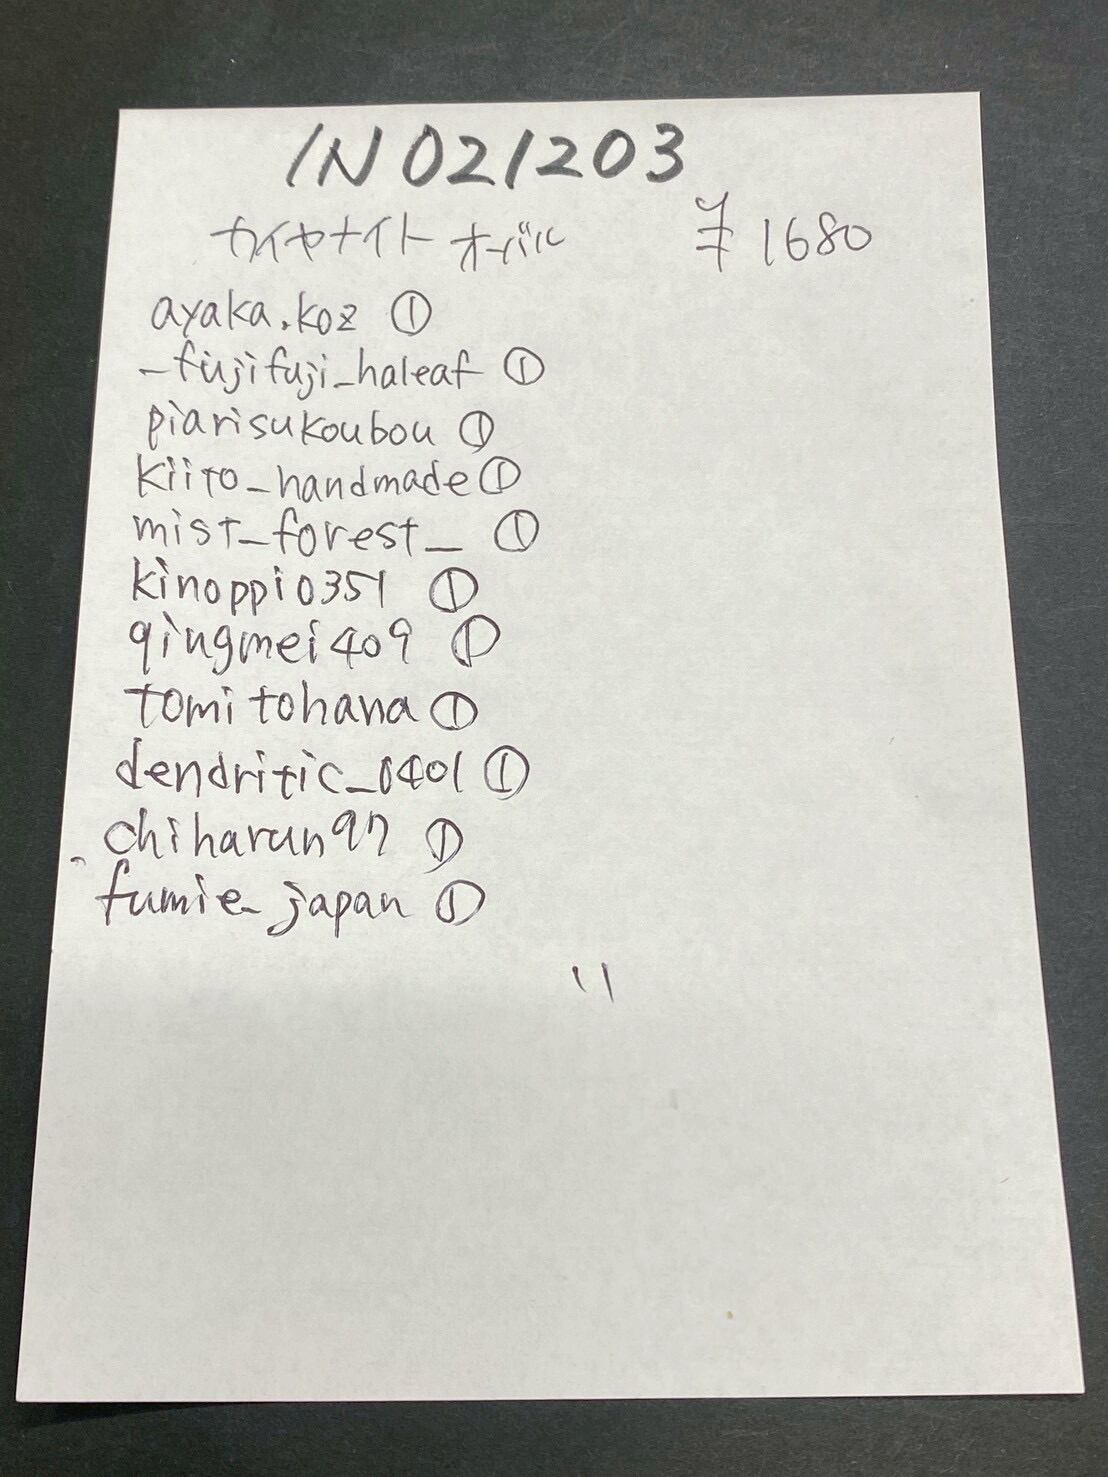 IN021203
カイヤナイト オーバル ¥1680
ayaka.koz ①
_fujifuji_haleaf ①
piarisukoubou ①
kiito_handmade ①
mist_forest_ ①
kinoppi0351 ①
qingmei409 ①
tomitohana ①
dendritic_0401 ①
chiharun97 ①
fumie_japan ①
11